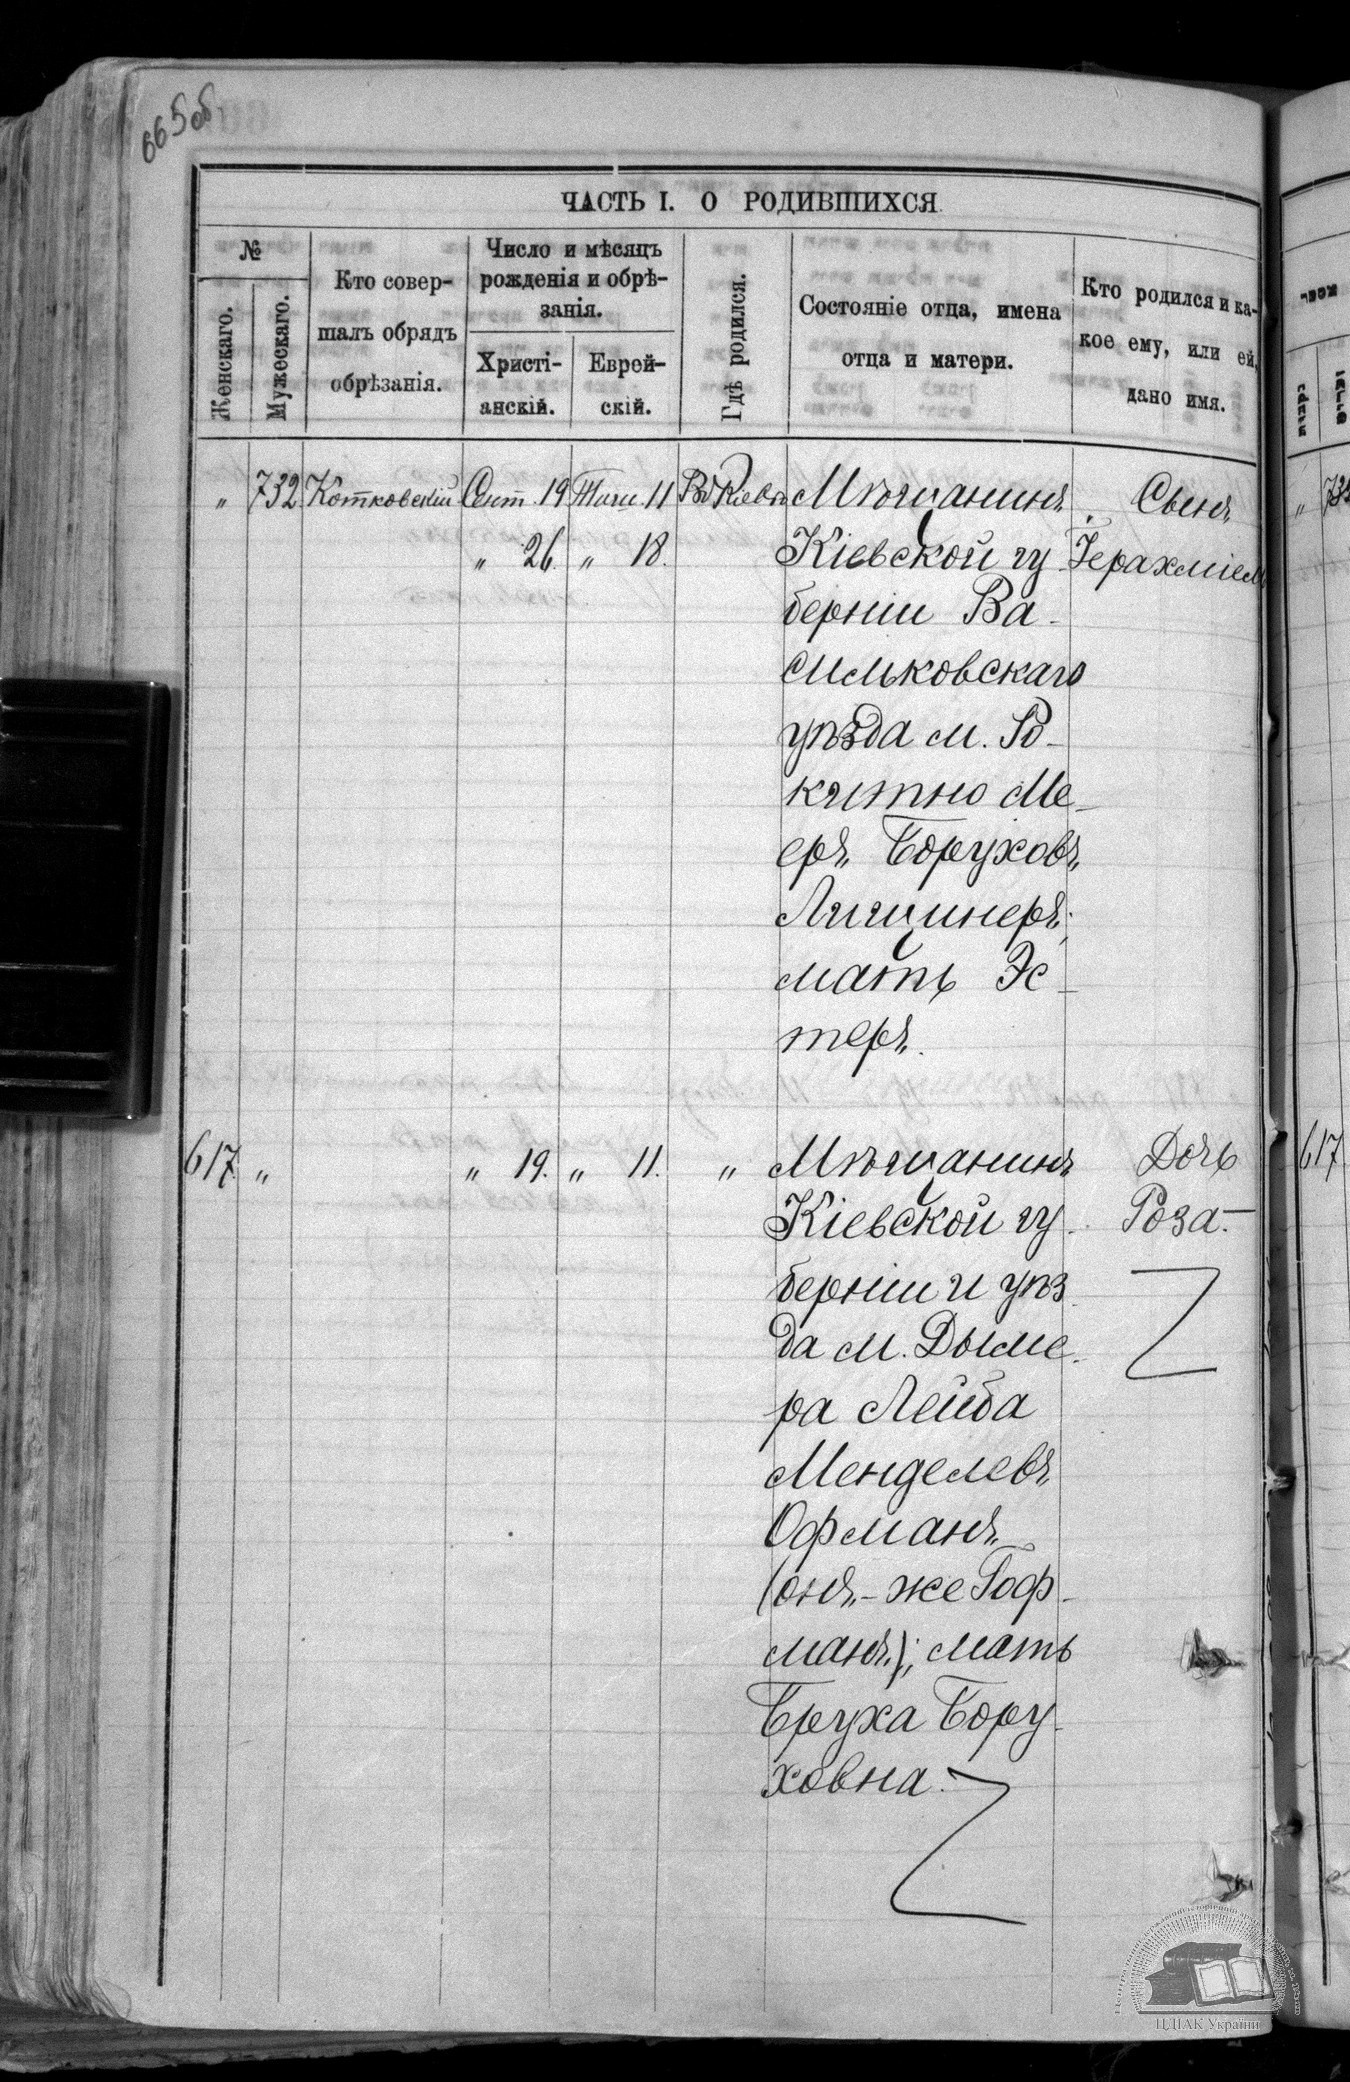 665 об.
ЧАСТЬ I. О РОДИВШИХСЯ.
№
Женскаго.
Мужескаго.
Кто совер-
шалъ обрядъ
обрѣзанія.
Число и мѣсяцъ
рожденія и обрѣ-
занія.
Христі-
анскій.
Еврей-
скій.
Гдѣ родился.
Состояніе отца, имена
отца и матери.
Кто родился и ка-
кое ему, или ей,
дано имя.
„ 732 Котковскій Сент. 19 Тиши 11 Въ Кіевѣ Мѣщанинъ Сынъ
„ 26. „ 18. Кіевской гу- Іерахміель
берніи Ва-
сильковскаго
уѣзда м. Ро-
китно Ме-
еръ Боруховъ
Лищинеръ;
мать Эс-
теръ.
617. „ „ 19. „ 11. „ Мѣщанинъ Дочь
Кіевской гу- Роза.
берніи и уѣз-
да м. Дыме-
ра Лейба
Менделевъ
Офманъ
(онъ-же Гоф-
манъ); мать
Бруха Бору-
ховна.
617
ЦДІАК України